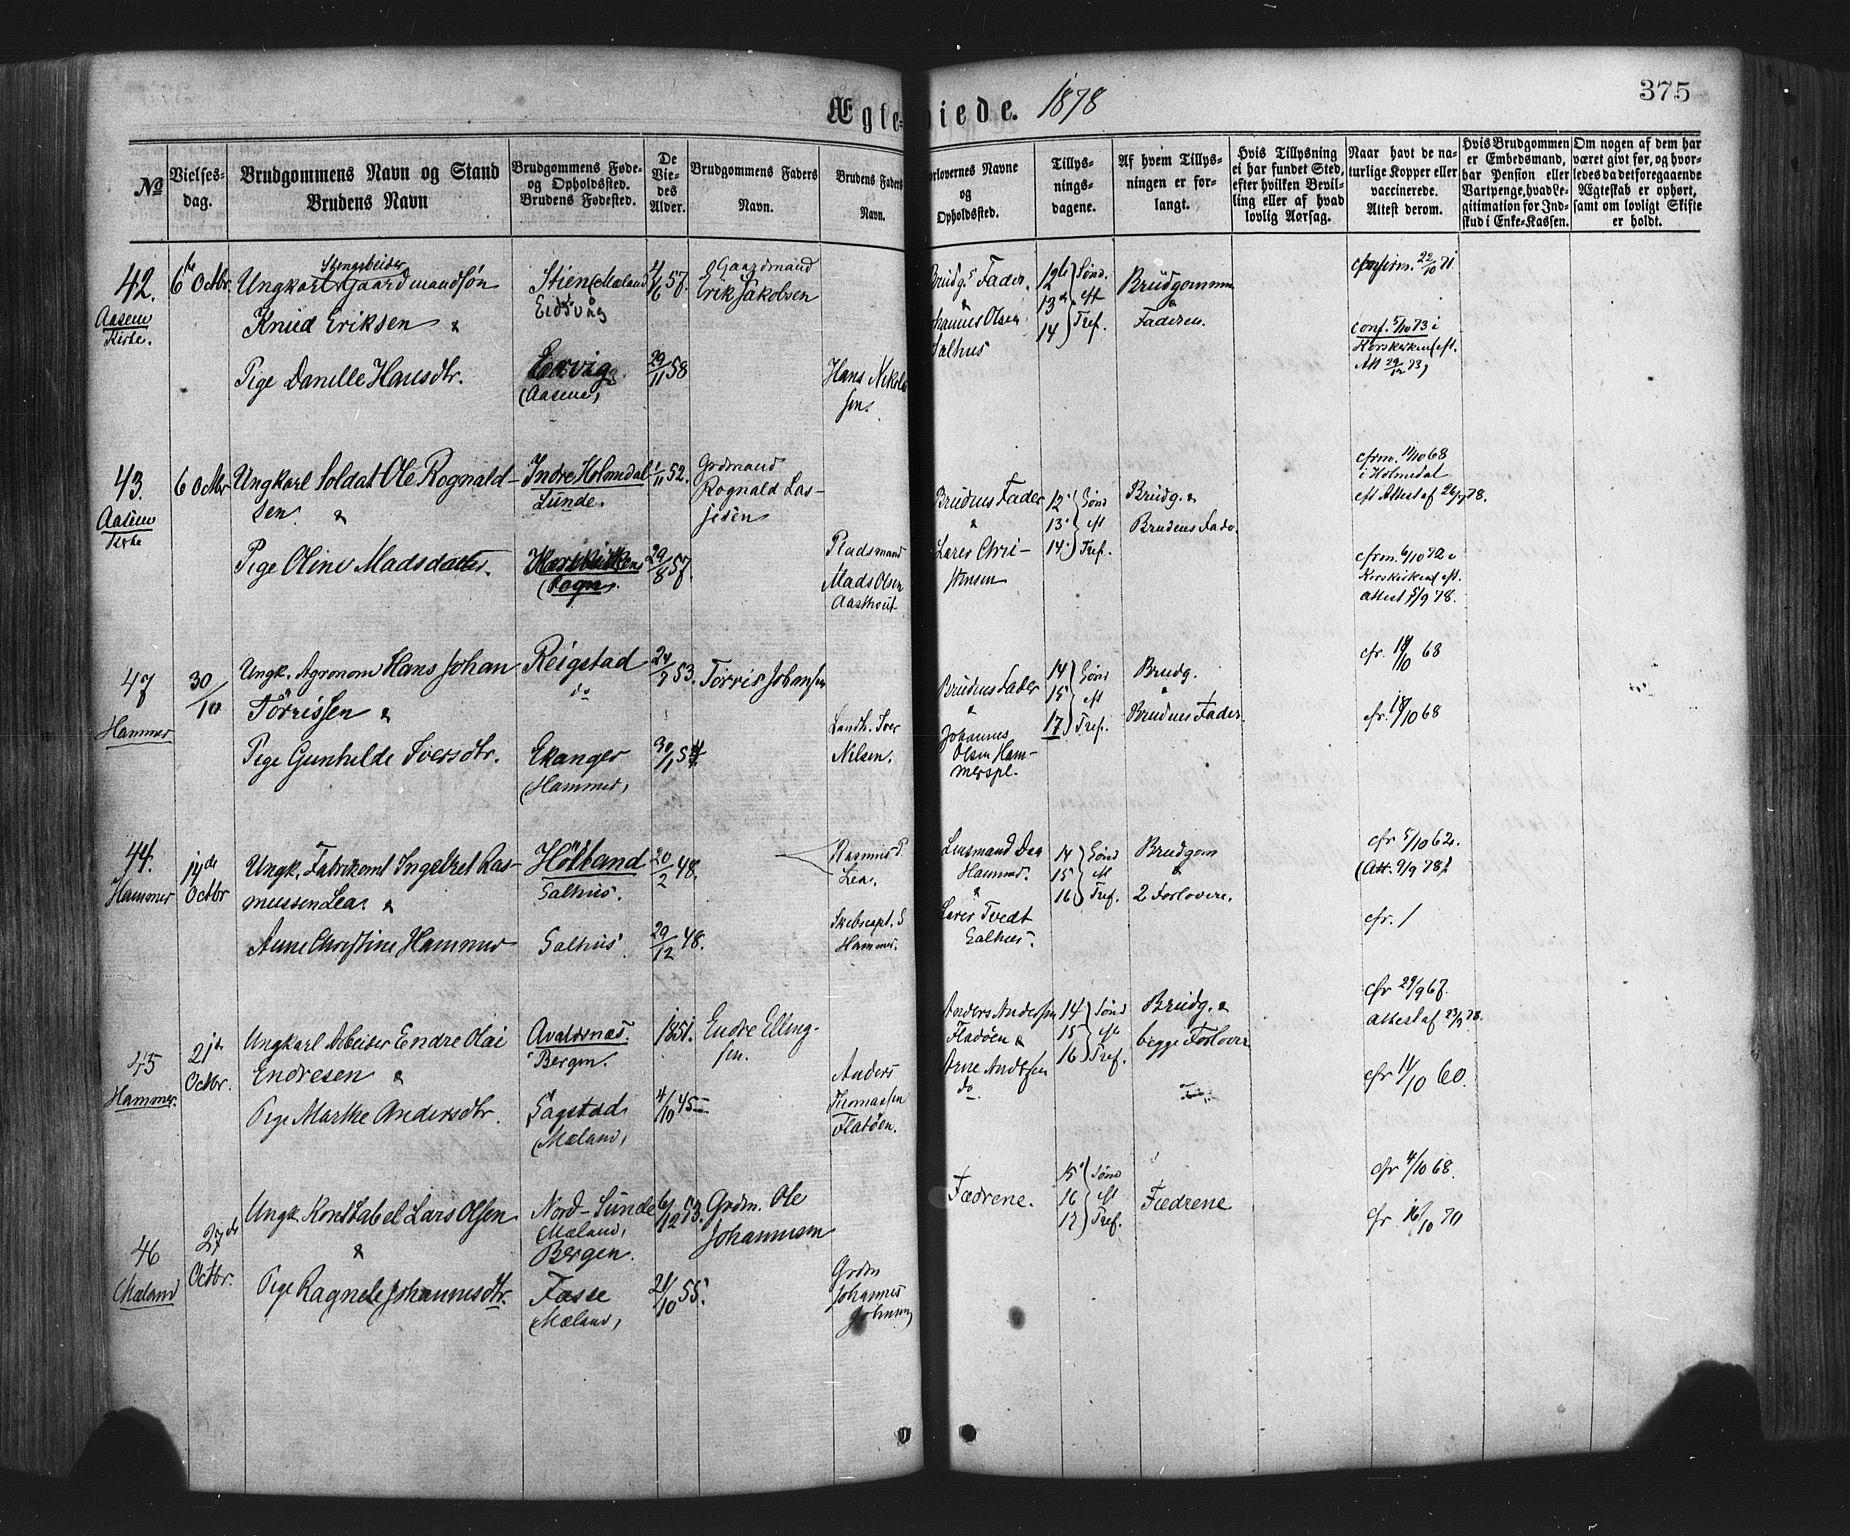 Ægte-
viede. 1878
375
No
Vielses-
dag.
Brudgommens Navn og Stand
Brudens Navn
Brudgommens Føde-
og Opholdssted.
Brudens Fødested.
De
Vie-
des
Alder.
Brudgommens Faders
Navn.
Brudens Faders
Navn.
Forlovernes Navne
og
Opholdssted.
Tillys-
nings-
dagene.
Af hvem Tillys-
ningen er for-
langt.
Hvis Tillysning
ei har fundet Sted,
efter hvilken Bevil-
ling eller af hvad
lovlig Aarsag.
Naar havt de na-
turlige Kopper eller
vaccinerede.
Attest derom.
Hvis Brudgommen
er Embedsmand,
har Pension eller
Vartpenge, hvad Le-
gitimation for Ind-
skud i Enke-Kassen.
Om nogen af dem har
været givt før, og hvor-
ledes da det foregaaende
Ægteskab er ophørt,
samt om lovligt Skifte
er holdt.
42.
Aasene
Kirke.
6te Octbr.
Ungkarl Gaardmandsøn
Knud Eriksen &
Pige Danille Hansdtr.
Stien (Mæland
Eidsvåg
Eervig
(Aasene)
4/6 57.
29/11 58
Gaardmand
Erik Jakobsen
Hans Nikolai
sen.
Brudg.s Fader.
&
Johannes Olsen
Salhus
12te } Sönd.
13de } eft
14 } Tref.
Brudgommen
&
Faderen.
confirm. 22/10 71.
conf. 5/10 73 i
Korskirken eft.
Att 29/12 73)
43.
Aasene
Kirke
6 Octbr
Ungkarl Soldat Ole Rognald-
sen. &
Pige Oline Madsdatter.
Indre Holmedal
Lunde.
Korskirkens
(Sogn).
1/11 52.
29/8 57.
Grdmand
Rognald Las-
sesen
Pladsmand
Mads Olsen
Brudens Fader
&
Lars Chri-
stensen
12. } Sönd
13. } eft
14. } Tref.
Brudg. &
Brudens Fader
cfrm. 11/10 68
i Holmedal
eft Attest af 26/7 78.
cfrm. 6/10 72 i
Korskirken eft.
attest 5/9 78.
47
Hammer
30/10
Ungk. Agronom Hans Johan
Törrissen &
Pige Gunhilde Iversdtr.
Reigstad
do
Ekanger
(Hammer)
24/7 53.
30/1 54
Törris Johansen
Landh. Iver
Nilsen.
Brudens Fader
&
Johannes
Olsen Ham-
merspl.
14 } Sönd
15 } eft
17 } Tref.
Brudg.
&
Brudens Fader.
cfr. 18/10 68
44.
Hammer
14de
Octbr
Ungk. Fabrikant Ingebret Ras-
mussen Lea. &
Anne Christine Hammer
Salhus.
Salhus.
20/2 48.
29/12 48.
Rasmus P.
Lea.
Skibscapt. S
Hammer.
Lensmand Dag
Hammer.
&
Lars Tvedt
Salhus.
14 } Sönd
15 } eft
16 } Tref.
Brudgom
&
2 Forlovere.
cfr 5/10 62.
(Att. 9/9 78)
cfr. /
45
Hammer.
21de
Octbr.
Ungkarl Arbeider Endre Olai
Endresen &
Pige Marthe Andersdtr.
Avaldsnes.
Bergen.
Sagstad
(Mæland)
1851.
4/10 45
Endre Elling-
sen.
Anders
Thomassen
Flatöen.
Anders Andersen
Fladöen &
Arne Andersen
do.
14 } Sönd
15 } eft
16 } Tref.
Brudg. &
begge Forlover
cfr 29/9 67.
attest af 23/9 78.
cfr 14/10 60.
46
Mæland
27de
Octbr.
Ungk. Konstabel Lars Olsen
&
Pige Ragnele Johannesdtr.
Nord-Sunde
(Mæland)
Bergen.
Fosse
(Mæland)
6/12 53.
21/10 55.
Grdm. Ole
Johannessen
Grdm
Johannes
Johnsen
Fædrene.
15 } Sönd
16 } eft
17 } Tref.
Fædrene
cfr 4/10 68.
cfr. 16/10 70